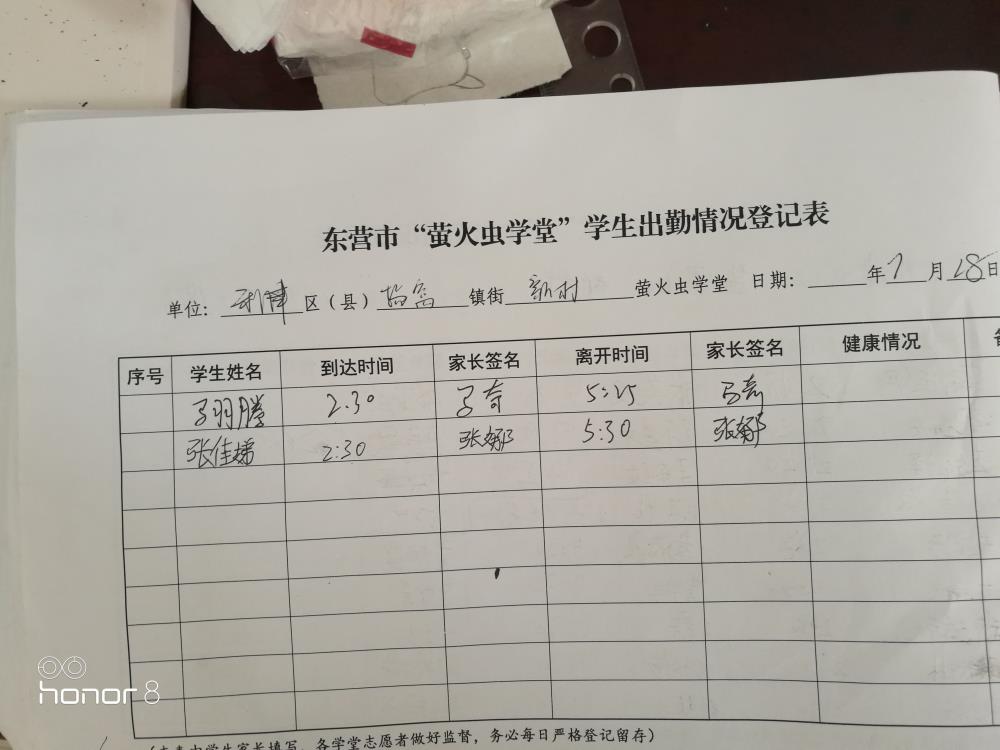 东营市“萤火虫学堂”学生出勤情况登记表
单位：利津区（县）镇街 新村 萤火虫学堂 日期： 年7月28日
序号 学生姓名 到达时间 家长签名 离开时间 家长签名 健康情况
羽腾 2:30 奇 5:25
张佳娣 2:30 张娜 5:30 张娜
（本表由学生家长填写，各学堂志愿者做好监督，务必每日严格登记留存）
honor 8